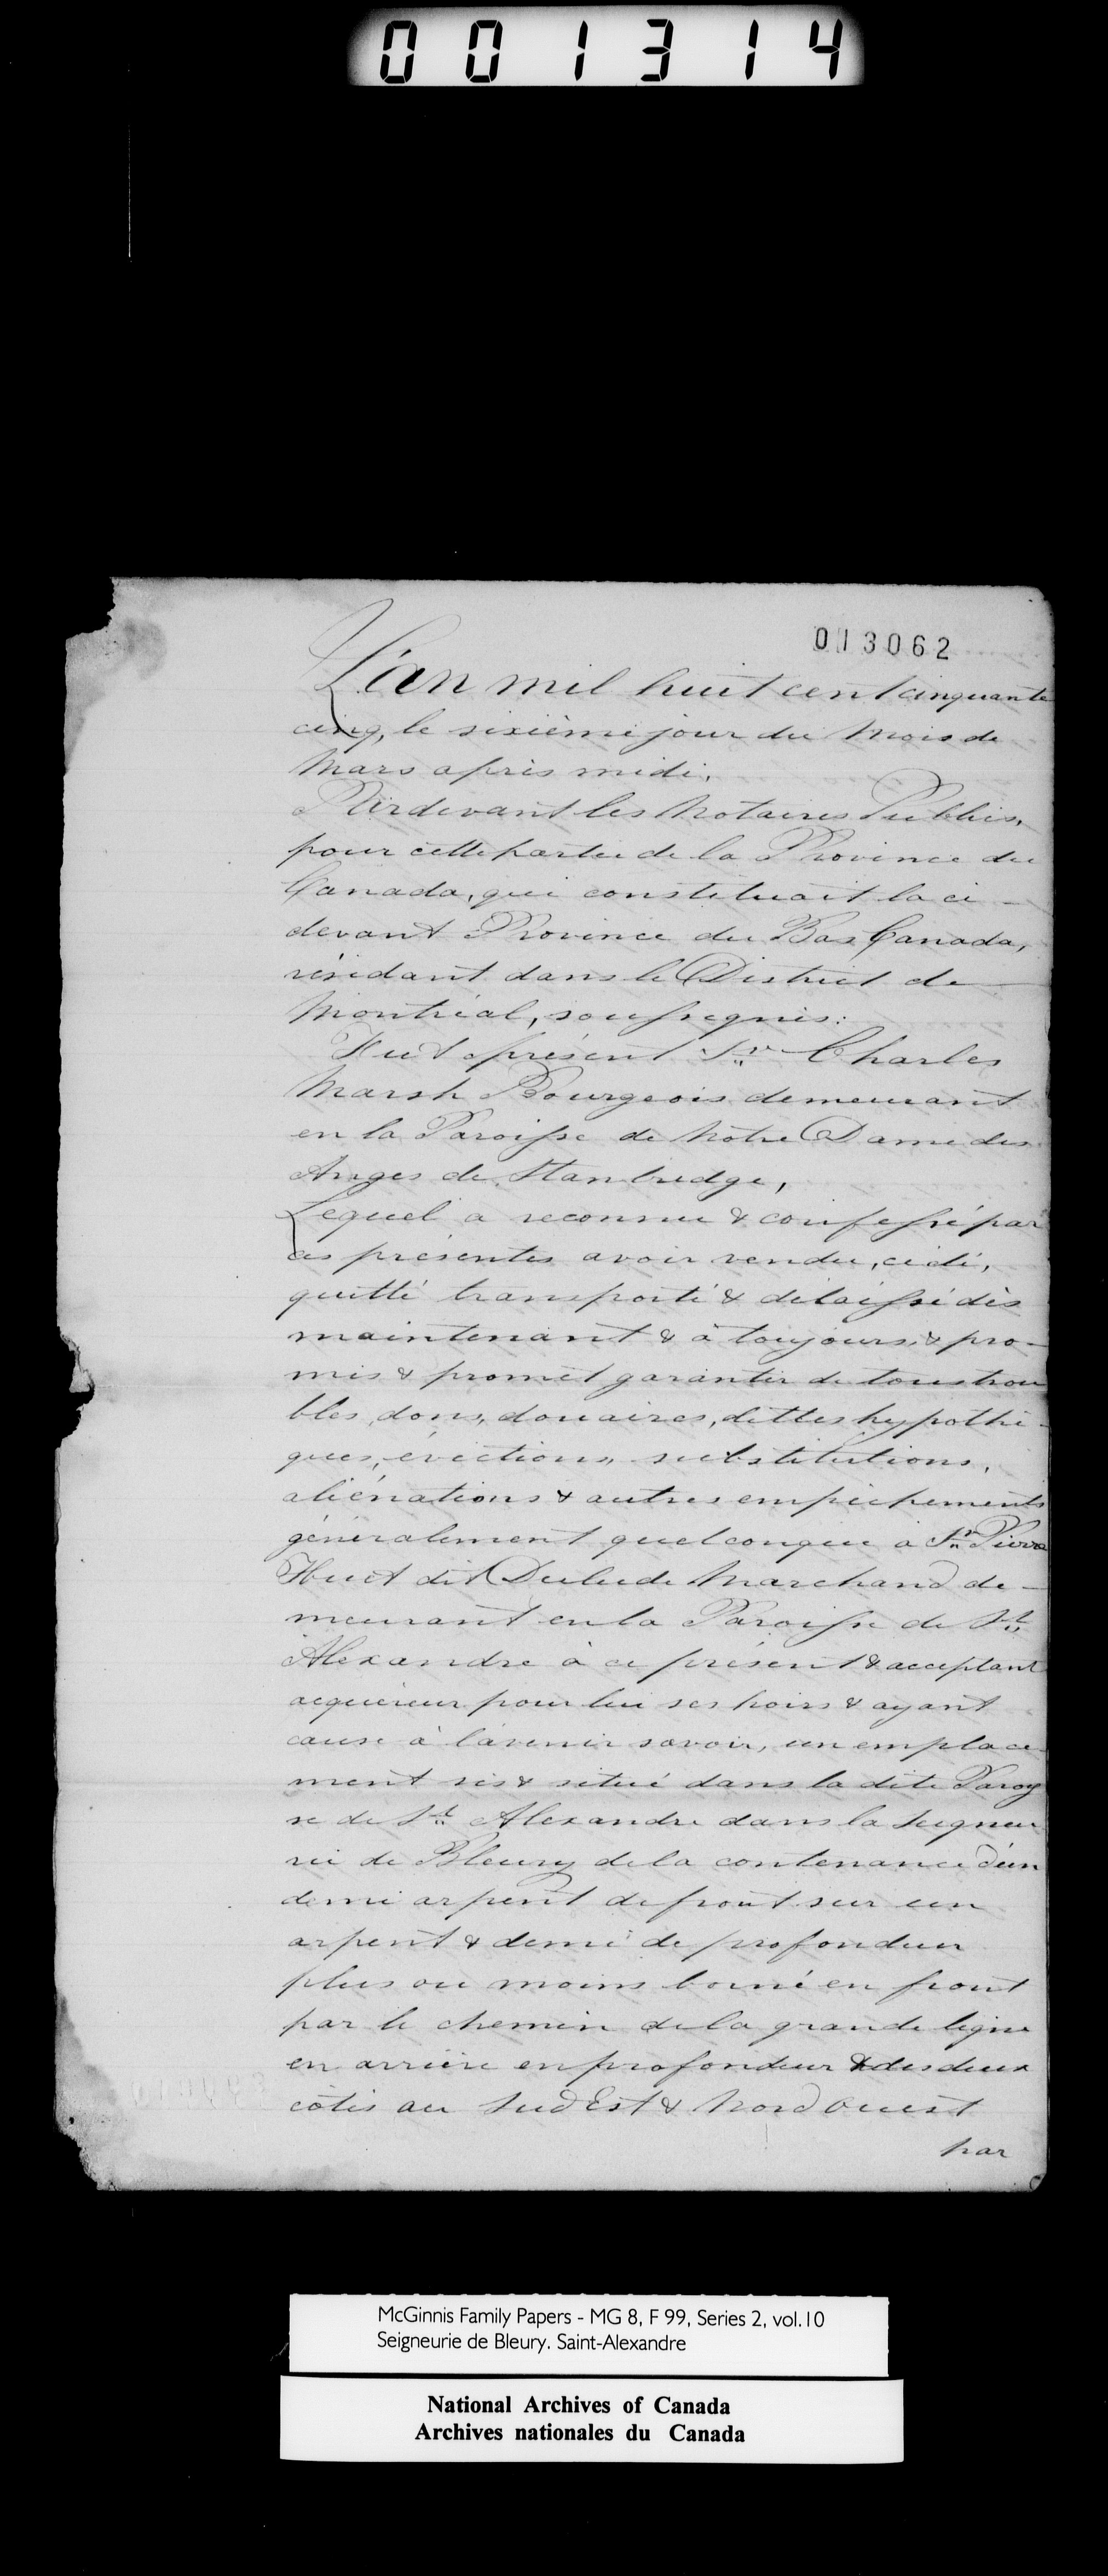 001314
013062
L'an mil huit cent cinquante
cinq, le sixième jour du mois de
Mars après midi.
Pardevant les Notaires Publics,
pour cette partie de la Province du
Canada, qui constituait la ci-
devant Province du Bas Canada,
résidant dans le District de
Montréal, soussignés:
Fut présent Sr. Charles
Marsh Bourgeois demeurant
en la Paroisse de Notre Dame des
Anges de Stanbridge,
Lequel a reconnu & confessé par
ces présentes avoir vendu, cédé,
quitté transporté & délaissé dès
maintenant & à toujours & pro-
mis & promet garantir de tous trou
bles, dons, douaires, dettes hypothè-
ques, évictions, substitutions,
aliénations & autres empêchements
généralement quelconque à Sr. Pierre
Huet dit Dulude Marchand de-
meurant en la Paroisse de St.
Alexandre à ce présent & acceptant
acquéreur pour lui ses hoirs & ayant
cause à l'avenir savoir, un emplace-
ment sis & situé dans la dite Parois
se de St. Alexandre dans la Seigneu
rie de Bleury de la contenance d'un
demi arpent de front sur un
arpent & demi de profondeur
plus ou moins borné en front
par le chemin de la grande ligne
en arrière en profondeur & des deux
côtés au Sud Est & Nord Ouest
par
McGinnis Family Papers - MG 8, F 99, Series 2, vol.10
Seigneurie de Bleury. Saint-Alexandre
National Archives of Canada
Archives nationales du Canada